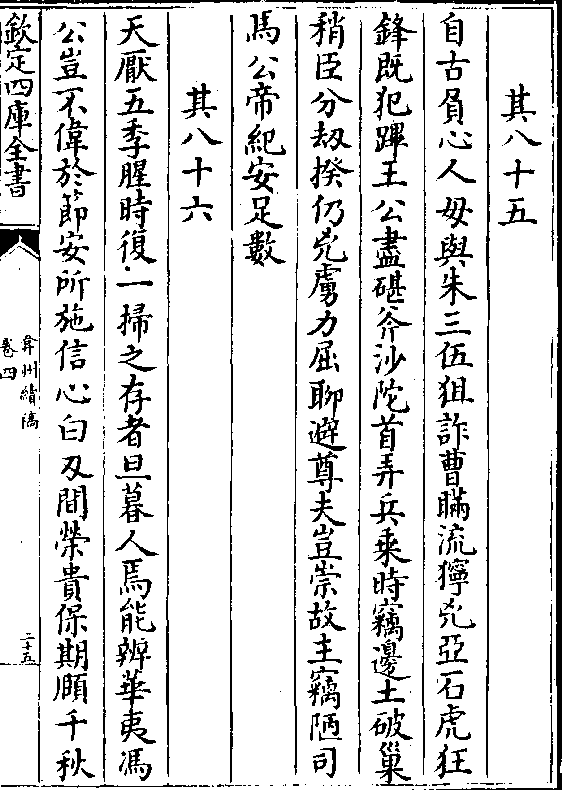 其八十五
自古負心人毋與朱三伍狙詐曹瞞流獰兇亞石虎狂
鋒既犯蹕王公盡碪斧沙陀首弄兵乘時竊邊土破巢
稍臣分刼揆仍兇虜力屈聊避尊夫豈崇故主竊陋司
馬公帝紀安足數
其八十六
天厭五季腥時復一掃之存者旦暮人焉能辨華夷馮
公豈不偉於節安所施信心白刃間榮貴保期頤千秋
欽定四庫全書
弇州續稿
卷四
二十五